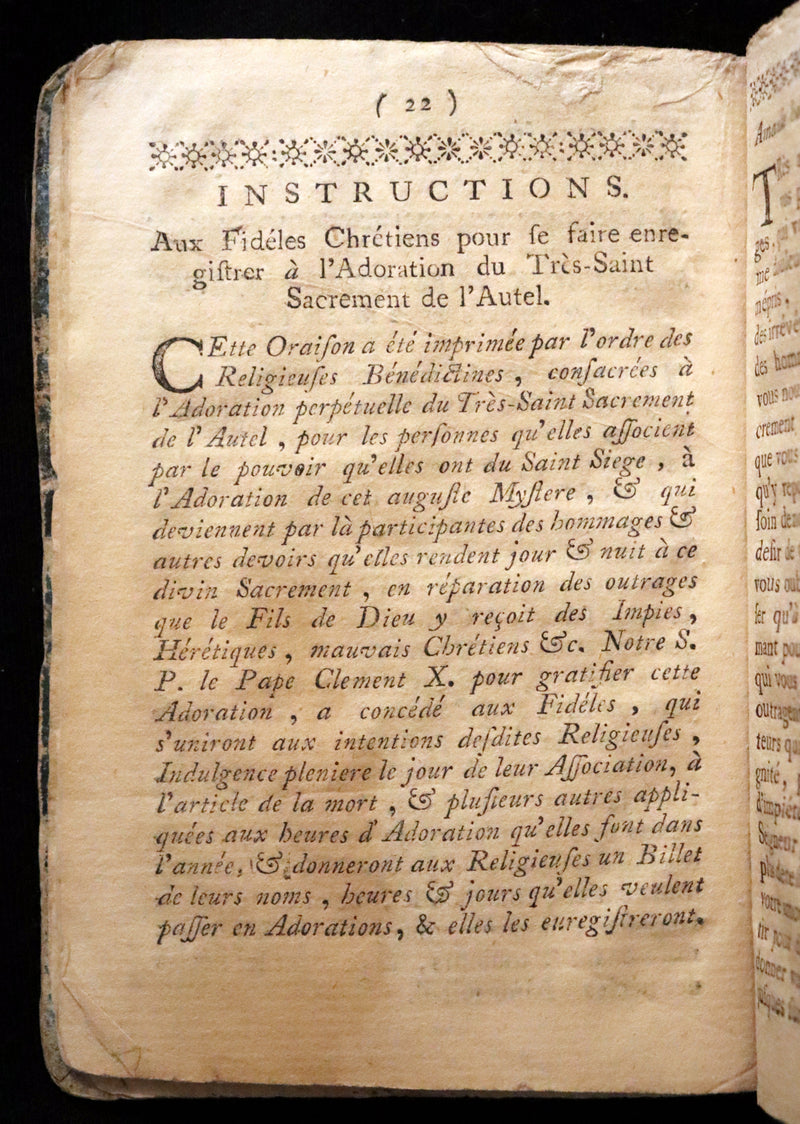 ( 22 )
INSTRUCTIONS.
Aux Fidéles Chrétiens pour ſe faire enre-
giſtrer à l'Adoration du Très-Saint
Sacrement de l'Autel.
CEtte Oraiſon a été imprimée par l'ordre des
Religieuſes Bénédictines, conſacrées à
l'Adoration perpétuelle du Très-Saint Sacrement
de l'Autel, pour les perſonnes qu'elles aſſocient
par le pouvoir qu'elles ont du Saint Siege, à
l'Adoration de cet auguſte Myſtere, & qui
deviennent par là participantes des hommages &
autres devoirs qu'elles rendent jour & nuit à ce
divin Sacrement, en réparation des outrages
que le Fils de Dieu y reçoit des Impies,
Hérétiques, mauvais Chrétiens &c. Notre S.
P. le Pape Clement X. pour gratifier cette
Adoration, a concédé aux Fidéles, qui
s'uniront aux intentions deſdites Religieuſes,
Indulgence pleniere le jour de leur Aſſociation, à
l'article de la mort, & pluſieurs autres appli-
quées aux heures d'Adoration qu'elles font dans
l'année, & donneront aux Religieuſes un Billet
de leurs noms, heures & jours qu'elles veulent
paſſer en Adorations, & elles les euregiſtreront.
ges
me
népris,
des irrévé
des hom
vous nou
crement
que vous
qu'y
ſoin de
deſir de
vous
ſer qu'
mant pou
qui vous
outragen
teurs qu
gnité,
d'impié
Seigneur
votre
tir
donner